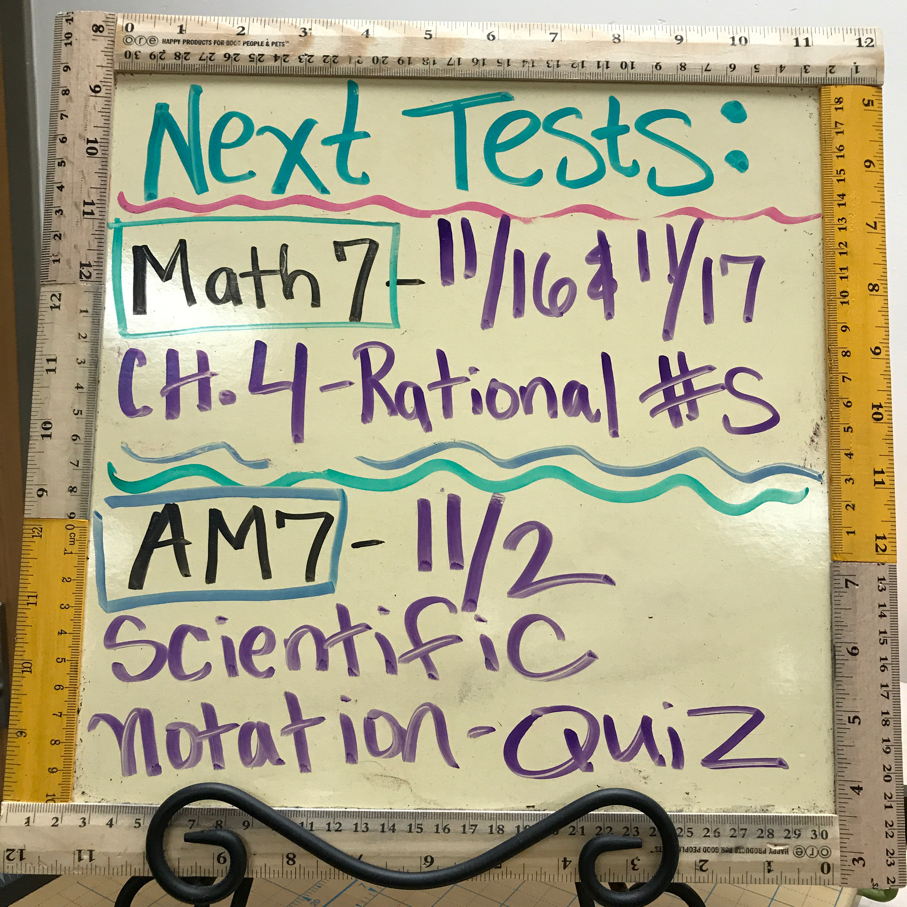 Next Tests:
Math 7 - 11/16 & 11/17
CH. 4 - Rational #s
AM7 - 11/2
Scientific
Notation - Quiz
HAPPY PRODUCTS FOR GOOD PEOPLE & PETS™
0 1 2 3 4 5 6 7 8 9 10 11 12